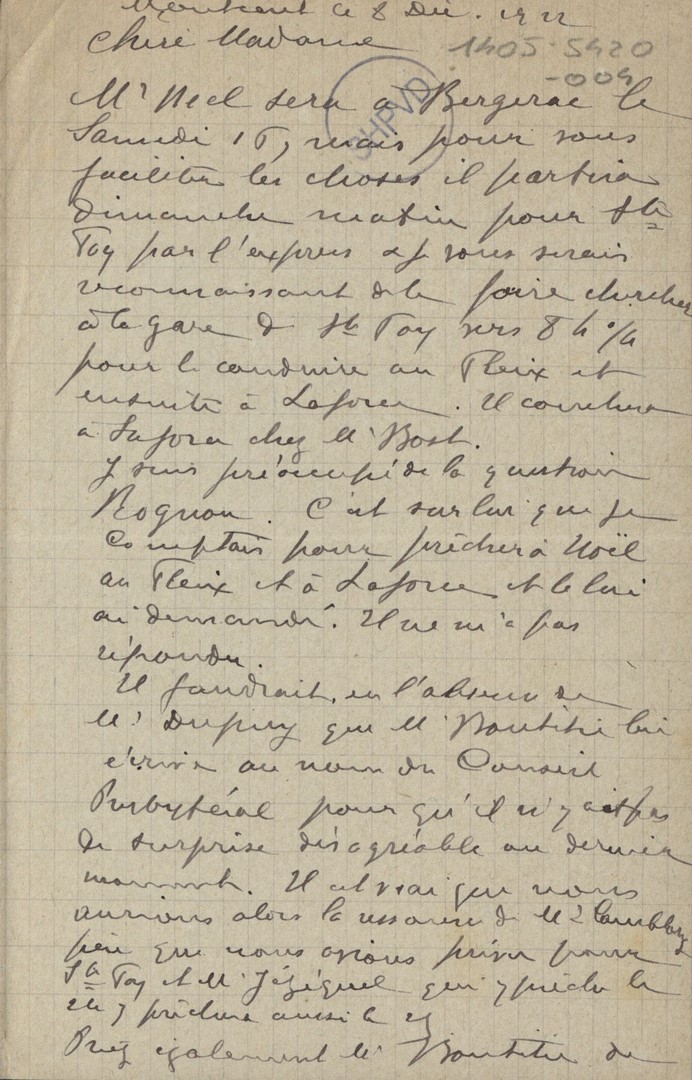 ce 8 Déc. 1922
Chère Madame
1405-5420
-004
SHPVD
Mr Neel sera à Bergerac le
Samedi 15, mais pour vous
faciliter les choses il partira
dimanche matin pour Ste
Foy par l'express et je vous serais
reconnaissant de le faire chercher
à la gare de Ste Foy vers 8 h
pour le conduire au Fleix et
ensuite à Laforce. Il couchera
à Laforce chez Mr Bost.
Je suis préoccupé de la question
Rognon. C'est sur lui que je
comptais pour prêcher à Noël
au Fleix et à Laforce et le lui
ai demandé. Il ne m'a pas
répondu.
Il faudrait, en l'absence de
Mr Dupuy que Mr lui
écrive au nom du Conseil
Presbytéral pour qu'il n'y ait pas
de surprise désagréable au dernier
moment. Il est vrai que nous
aurions alors la ressource de Mr
père que nous avions prévu pour
Ste Foy et Mr Jézéquel qui y prêche le
24 y prêchera aussi le 25
Priez également Mr de